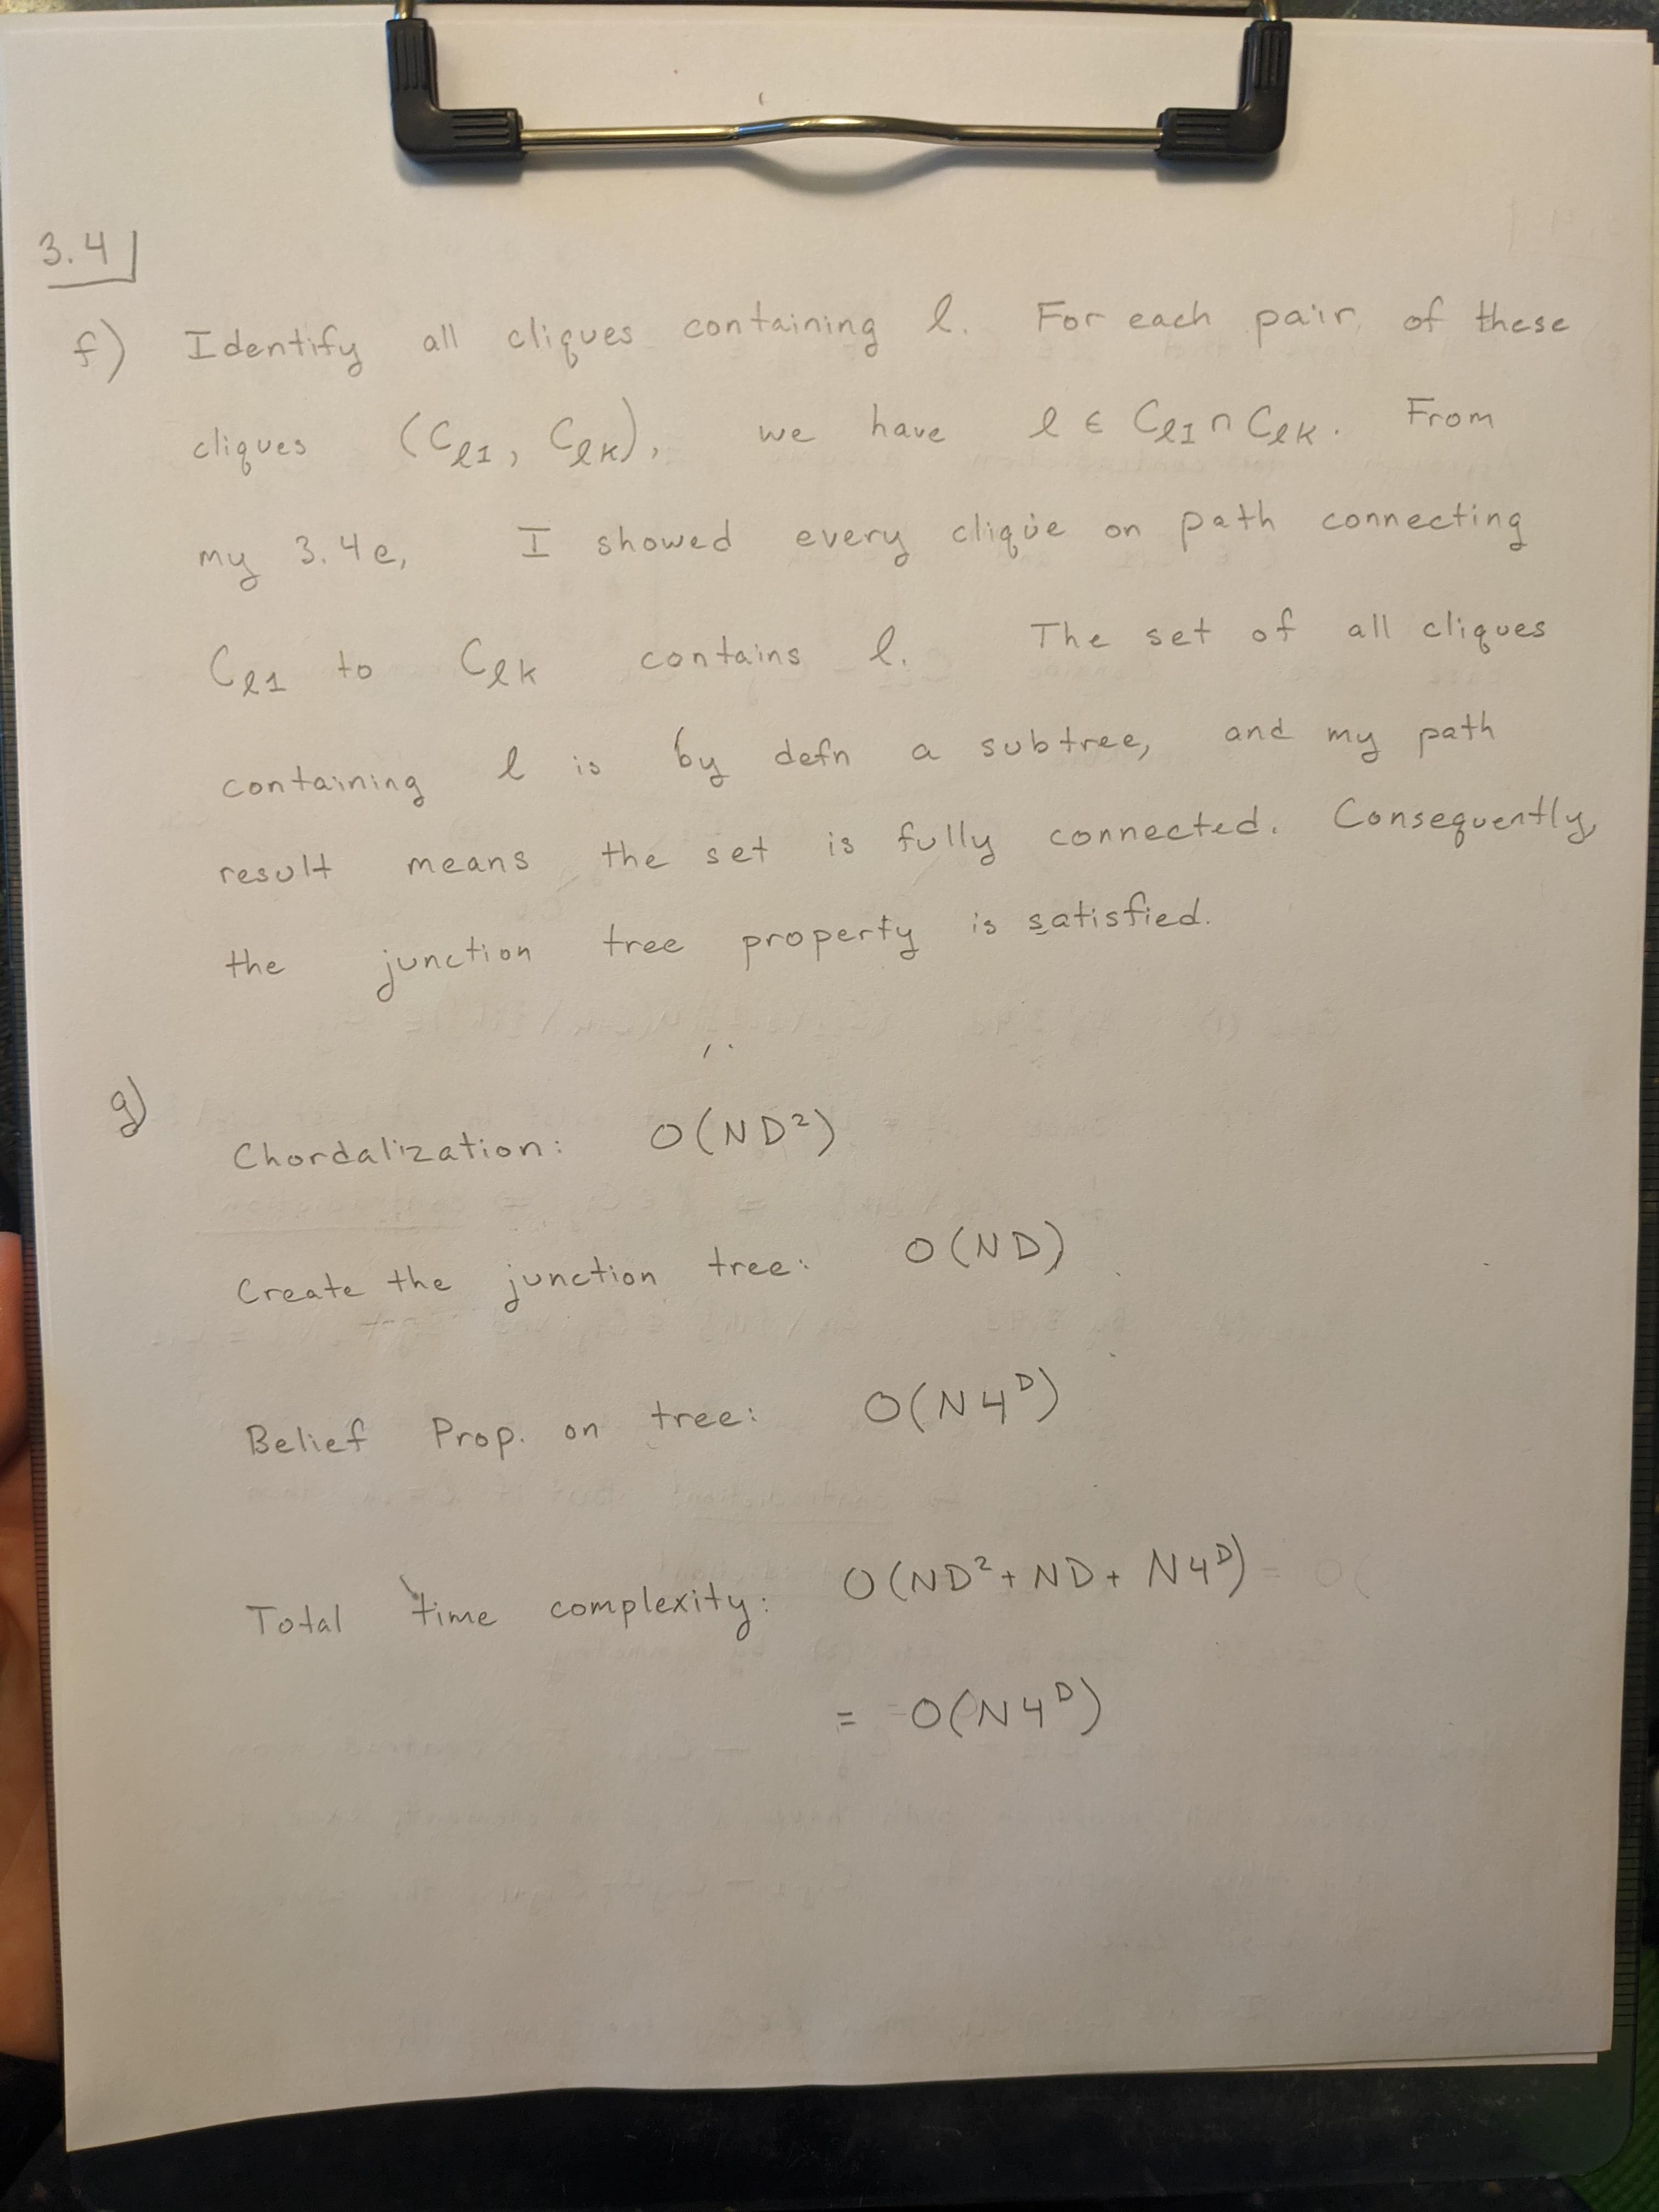 3.4
f) Identify all cliques containing ℓ. For each pair of these
cliques (Cℓ1, CℓK), we have ℓ ∈ Cℓ1 ∩ CℓK. From
my 3.4e, I showed every clique on path connecting
Cℓ1 to CℓK contains ℓ. The set of all cliques
containing ℓ is by defn a subtree, and my path
result means the set is fully connected. Consequently,
the junction tree property is satisfied.
g)
Chordalization: O(ND²)
Create the junction tree: O(ND)
Belief Prop. on tree: O(N4^D)
Total time complexity: O(ND² + ND + N4^D)
= O(N4^D)